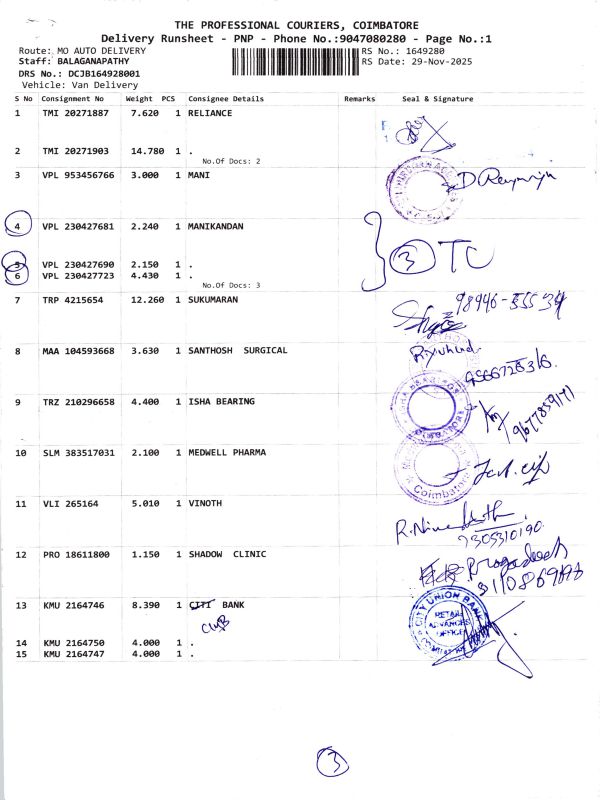 THE PROFESSIONAL COURIERS, COIMBATORE
Delivery Runsheet - PNP - Phone No.:9047080280 - Page No.:1
Route: MO AUTO DELIVERY RS No.: 1649280
Staff: BALAGANAPATHY RS Date: 29-Nov-2025
DRS No.: DCJB164928001
Vehicle: Van Delivery
S No Consignment No Weight PCS Consignee Details Remarks Seal & Signature
1 TMI 20271887 7.620 1 RELIANCE
2 TMI 20271903 14.780 1 .
No.Of Docs: 2
3 VPL 953456766 3.000 1 MANI
4 VPL 230427681 2.240 1 MANIKANDAN
3 TC
5 VPL 230427690 2.150 1 .
6 VPL 230427723 4.430 1 .
No.Of Docs: 3
7 TRP 4215654 12.260 1 SUKUMARAN
98946-55534
8 MAA 104593668 3.630 1 SANTHOSH SURGICAL
9566728316.
9 TRZ 210296658 4.400 1 ISHA BEARING
9677859171
10 SLM 383517031 2.100 1 MEDWELL PHARMA
Coimbatore
11 VLI 265164 5.010 1 VINOTH
7305310190
12 PRO 18611800 1.150 1 SHADOW CLINIC
13 KMU 2164746 8.390 1 CITI BANK
CUB
CITY UNION BANK
RETAIL
ADVANCES
OFFICE
14 KMU 2164750 4.000 1 .
15 KMU 2164747 4.000 1 .
3